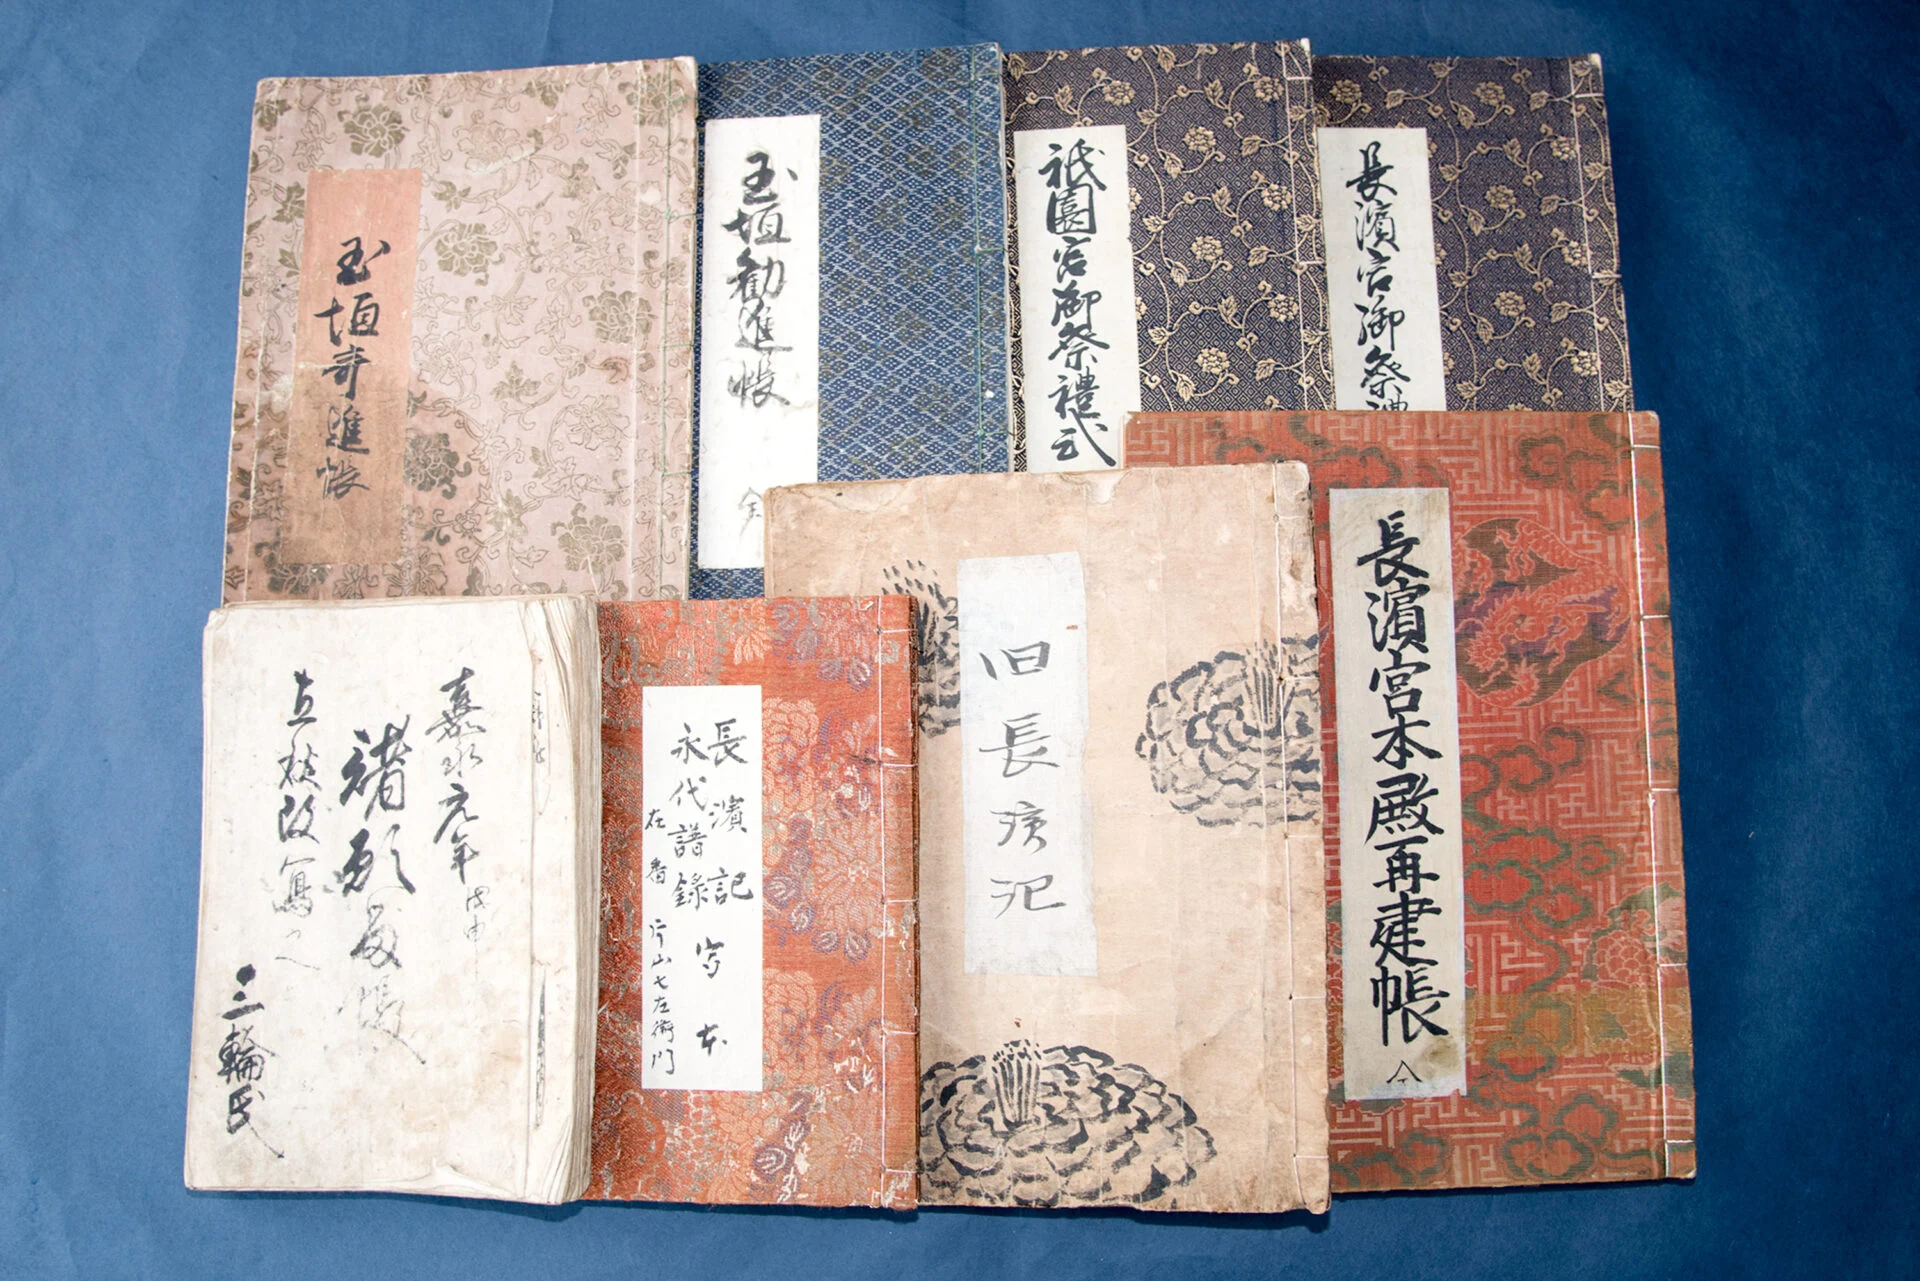 長濱宮御祭禮
祇園宮御祭禮式
玉垣勧進帳
全
玉垣寄進帳
長濱宮本殿再建帳
旧長浜記
長濱記
永代譜録 写本
在番 片山七左衛門
嘉永元年
戊申
諸願届帳
三輪氏